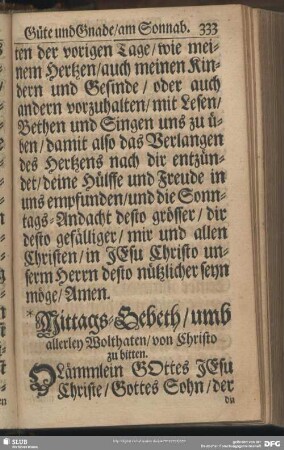 Güte und Gnade/am Sonnab. 333
ten der vorigen Tage/wie mei-
nem Hertzen/auch meinen Kin-
dern und Gesinde/ oder auch
andern vorzuhalten/mit Lesen/
Bethen und Singen uns zu ü-
ben/damit also das Verlangen
des Hertzens nach dir entzün-
det/deine Hülffe und Freude in
uns empfunden/und die Sonn-
tags-Andacht desto grösser/ dir
desto gefälliger/mir und allen
Christen/ in JEsu Christo un-
serm Herrn desto nützlicher seyn
möge/Amen.
*Mittags-Gebeth/umb
allerley Wolthaten/von Christo
zu bitten.
O Lämmlein GOttes JEsu
Christe/Gottes Sohn/der
du
SLUB
DFG